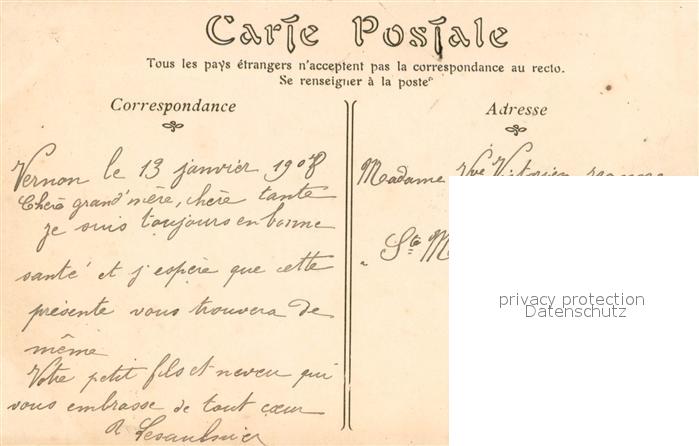 Carte Postale
Tous les pays étrangers n'acceptent pas la correspondance au recto.
Se renseigner à la poste
Correspondance
Adresse
Vernon le 13 janvier 1908
Chère grand'mère, chère tante
je suis toujours en bonne
santé et j'espère que cette
présente vous trouvera de
même
Votre petit fils et neveu qui
vous embrasse de tout cœur
R Lesaulnier
Madame Vve Victorien
Ste M
privacy protection
Datenschutz